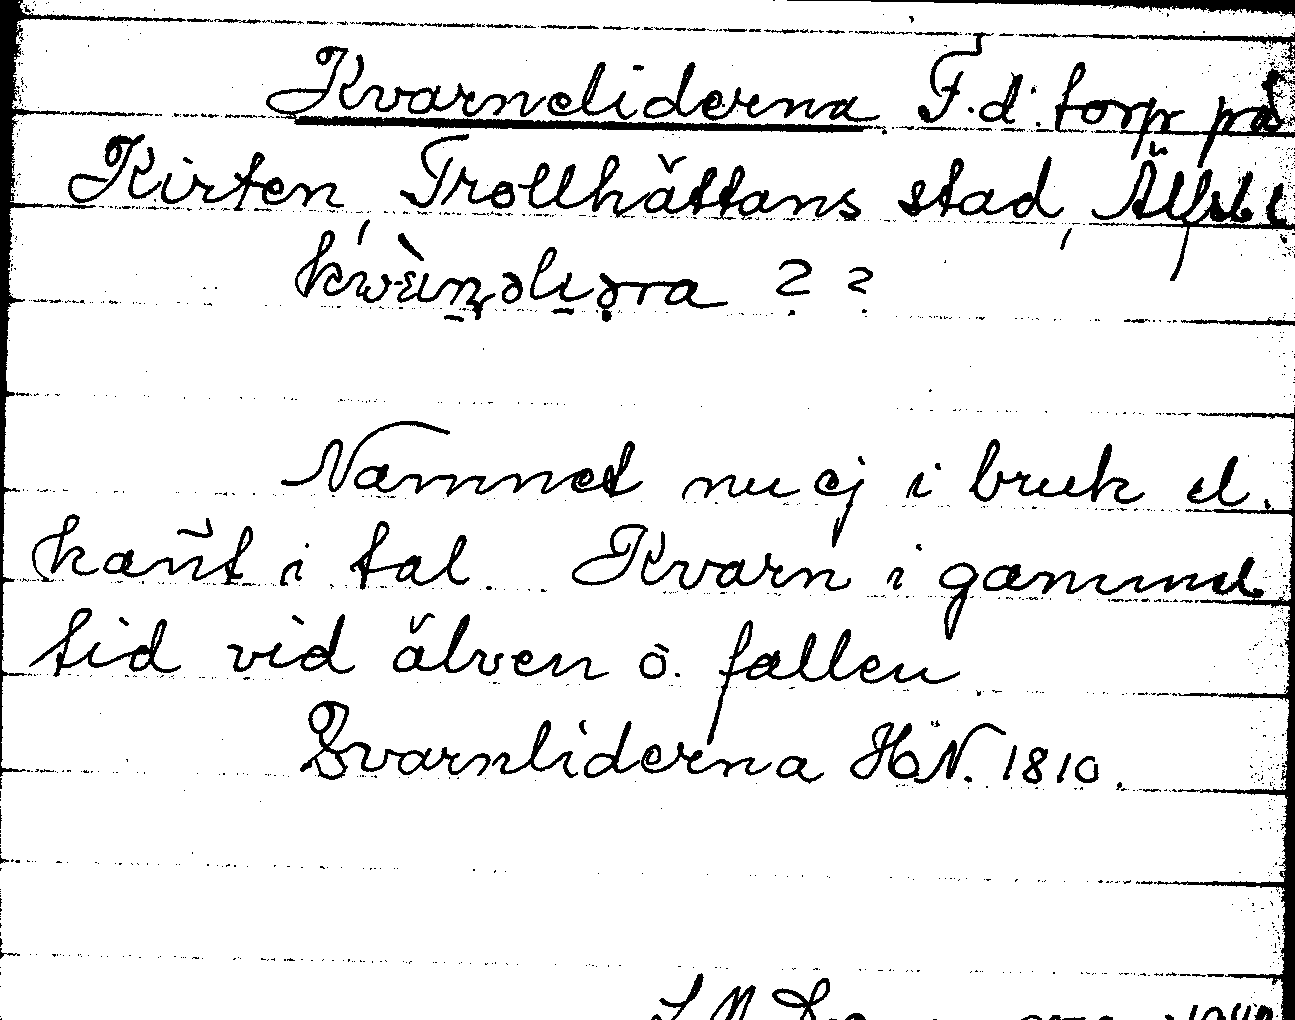 Kvarneliderna F.d. torp på
Kirten, Trollhättans stad, Älfsb. l
? ?
Namnet nu ej i bruk el.
känt i tal. Kvarn i gammal
tid vid älven o. fallen
Qvarnliderna HN. 1810.